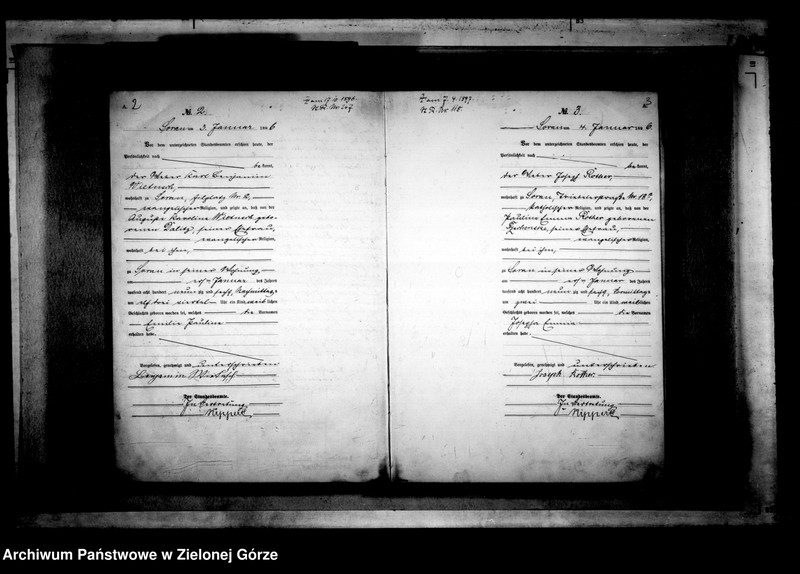 2
† am 17.10.1896.
№ 2.
Sorau am 3. Januar 1896
Vor dem unterzeichneten Standesbeamten erschien heute, der
Persönlichkeit nach
bekannt,
der Weber Karl Benjamin
wohnhaft zu Sorau,
evangelischer Religion, und zeigte an, daß von der
Auguste Karoline gebo-
renen seiner Ehefrau,
evangelischer Religion,
wohnhaft bei ihm,
zu Sorau in seiner Wohnung
am Januar des Jahres
tausend acht hundert neunzig und sechs, Nachmittags
um drei viertel Uhr ein Kind weiblichen
Geschlechts geboren worden sei, welches die Vornamen
Emilie Pauline
erhalten habe.
Vorgelesen, genehmigt und unterschrieben
Benjamin
Der Standesbeamte.
In Vertretung
† am 7.4.1897.
3
№ 3.
Sorau am 4. Januar 1896
Vor dem unterzeichneten Standesbeamten erschien heute, der
Persönlichkeit nach
bekannt,
der Weber Joseph Rother,
wohnhaft zu Sorau,
katholischer Religion, und zeigte an, daß von der
Pauline Emma Rother geborenen
seiner Ehefrau,
evangelischer Religion,
wohnhaft bei ihm,
zu Sorau in seiner Wohnung
am Januar des Jahres
tausend acht hundert neunzig und sechs, Vormittags
um zwei Uhr ein Kind weiblichen
Geschlechts geboren worden sei, welches die Vornamen
Josepha Emma
erhalten habe.
Vorgelesen, genehmigt und unterschrieben
Joseph Rother.
Der Standesbeamte.
In Vertretung
Archiwum Państwowe w Zielonej Górze